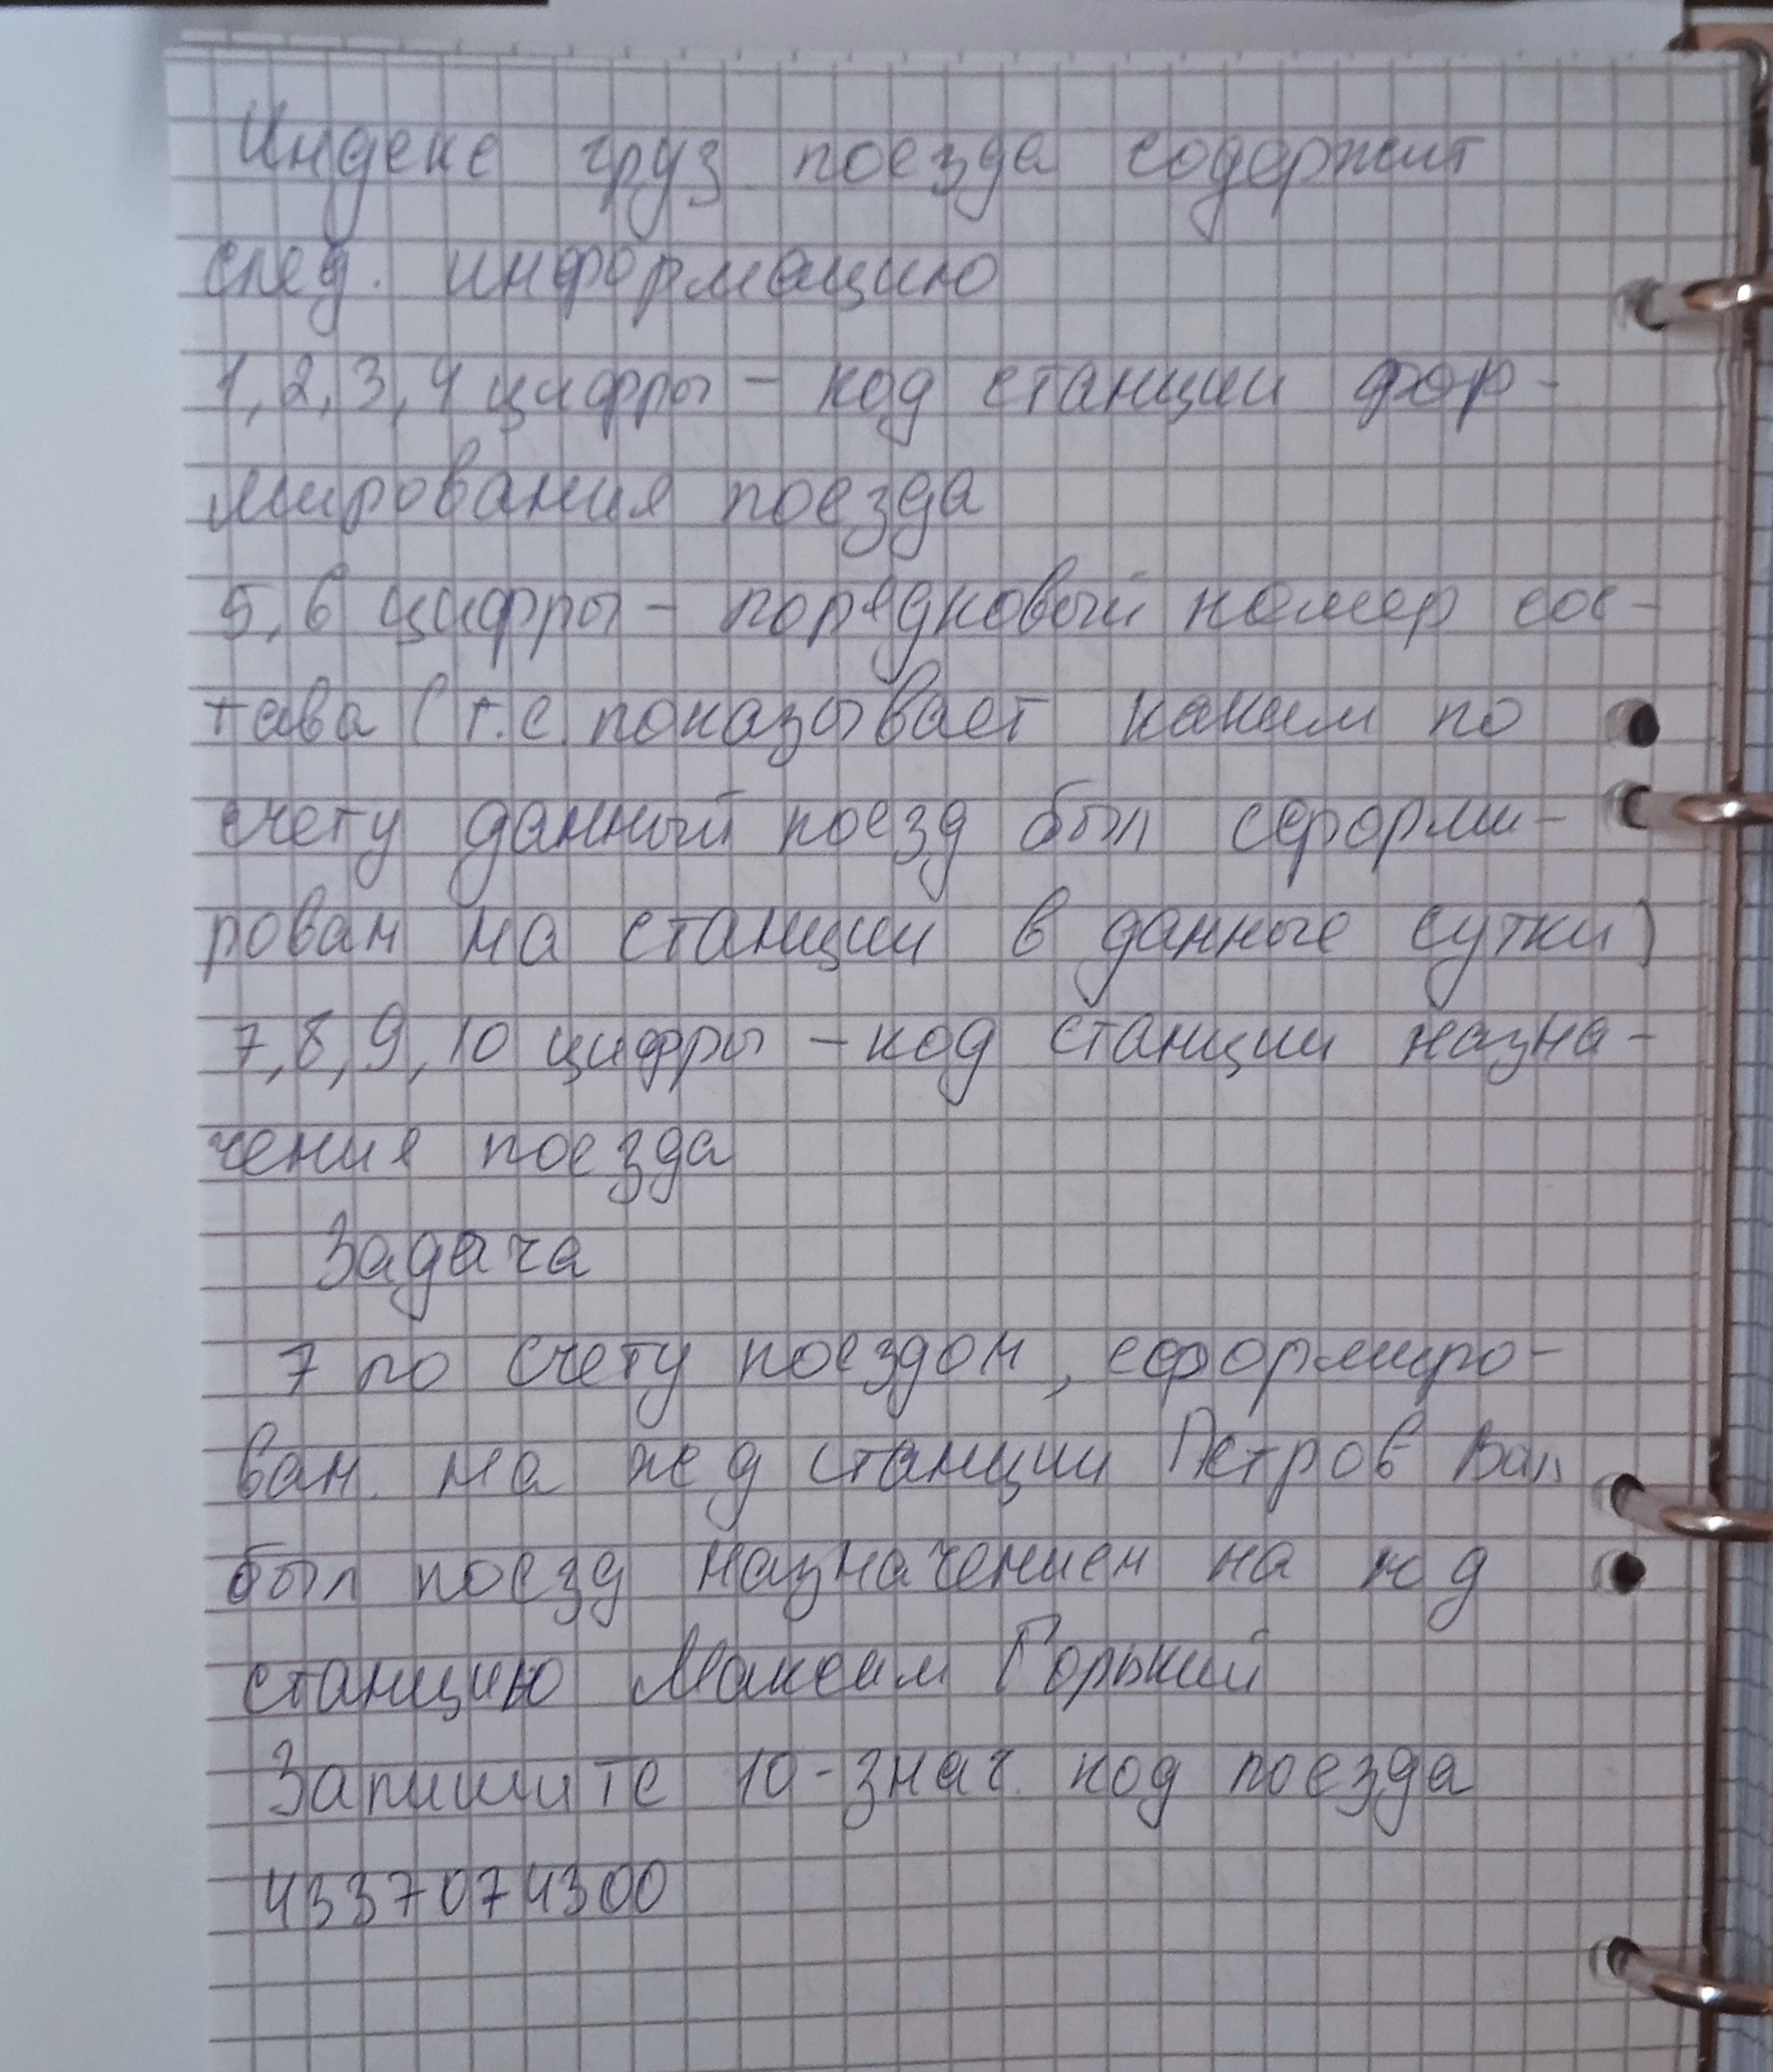 Индекс груз. поезда содержит
след. информацию
1, 2, 3, 4 цифры – код станции фор-
мирования поезда
5, 6 цифры – порядковый номер сос-
тава (т.е. показывает каким по
счету данный поезд был сформи-
рован на станции в данные сутки)
7, 8, 9, 10 цифры – код станции назна-
чения поезда
Задача
7 по счету поездом, сформиро-
ван. на жд станции Петров Вал
был поезд назначением на жд
станцию Максим Горький
Запишите 10-знач. код поезда
4337074300